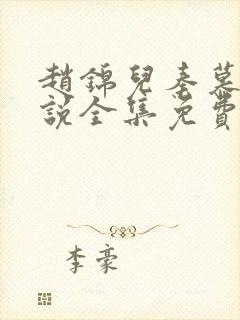 趙錦兒秦慕
說全集免費
李豪